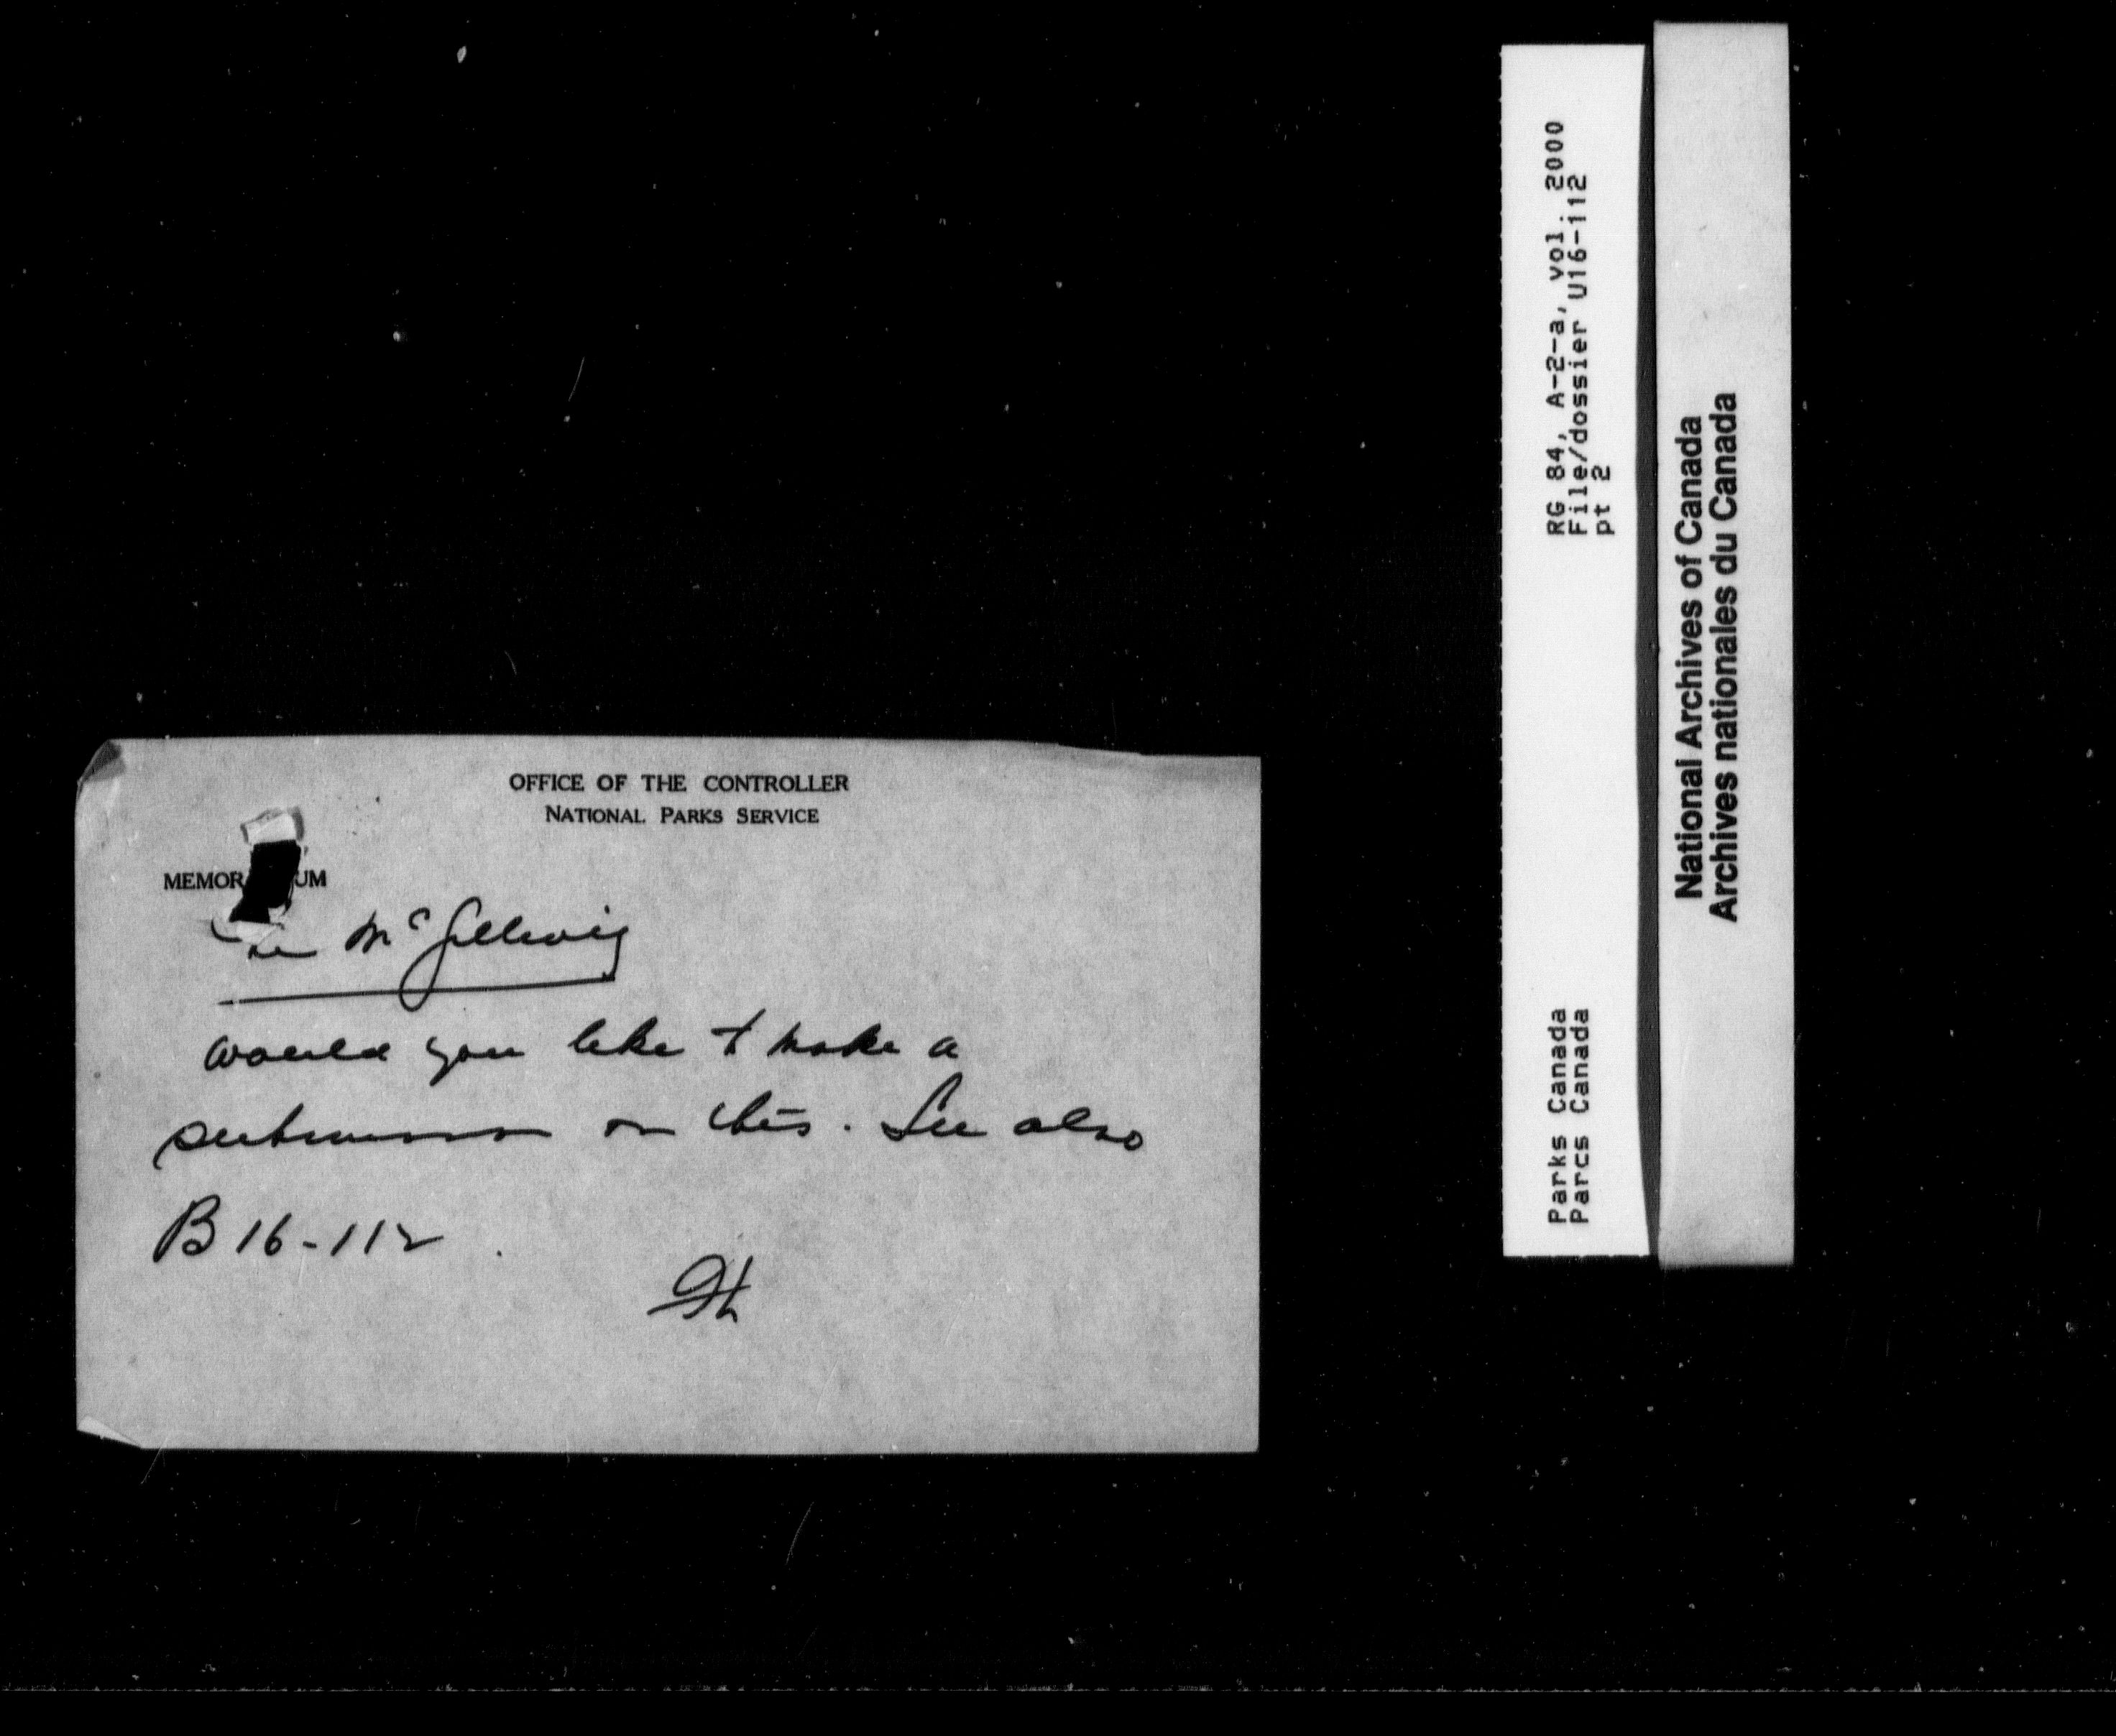 OFFICE OF THE CONTROLLER
NATIONAL PARKS SERVICE
MEMOR UM
would you like to make a
submission on this. See also
B 16-112
RG 84, A-2-a, vol. 2000
File/dossier U16-112
pt 2
Parks Canada
Parcs Canada
National Archives of Canada
Archives nationales du Canada